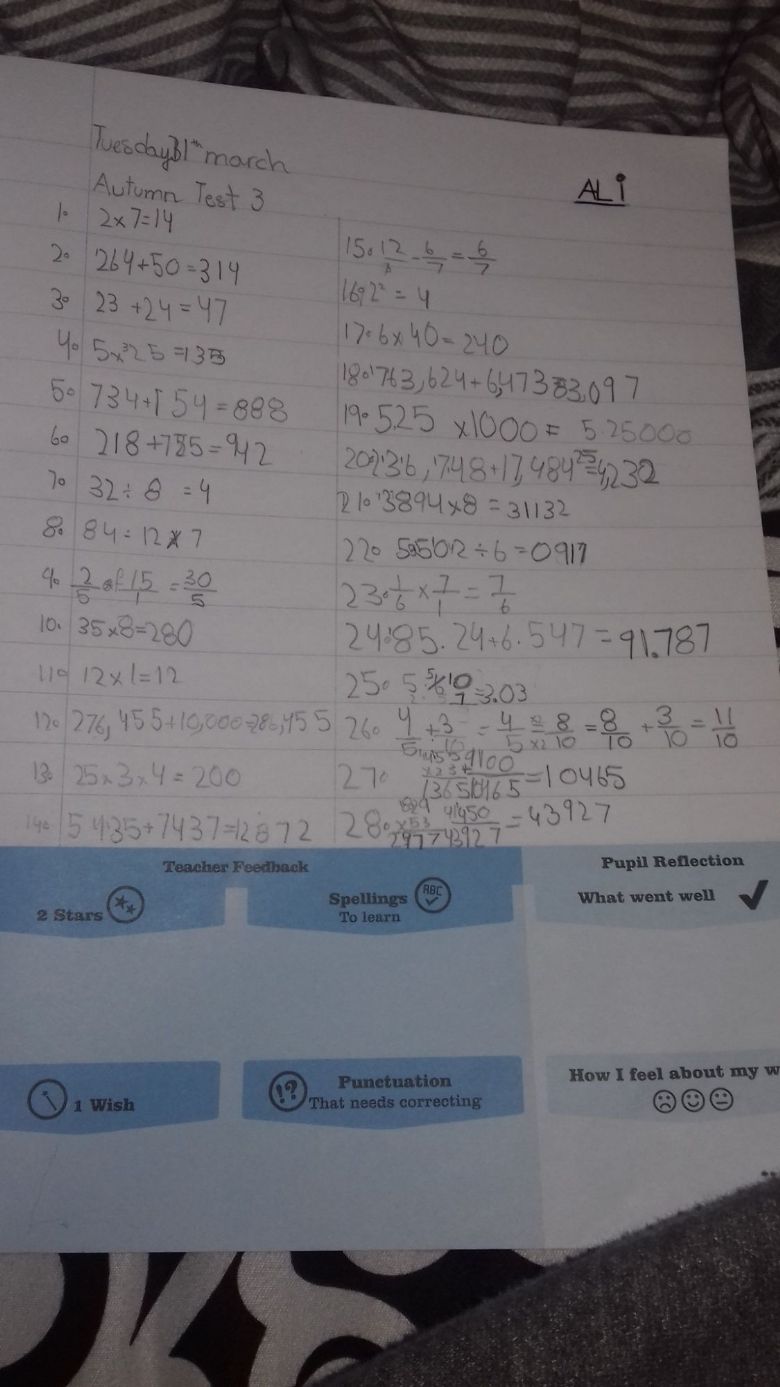 Tuesday 31th march
Autumn Test 3
ALi
1. 2x7=14
2. 264+50=314
3. 23 +24=47
4. 5x25=135
5. 734+154=888
6. 218+785=942
7. 32÷8 =4
8. 84÷12 7
9. 2/5 of 15/1 =30/5
10. 35x8=280
11. 12x1=12
12. 276,455+10,000=286,455
13. 25x3x4=200
14. 5435+7437=12872
15. 12 - 6/7 = 6/7
16. 2² = 4
17. 6x40=240
18. 763,624+6,473
19. 5.25 x1000= 5.25000
20. 236,748+17,484
21. 3894x8=31132
22. 5502÷6=0917
23. 1/6 x 7/1 = 7/6
24. 85.24+6.547=91.787
25. 3.03
26. 4/5 +3/10 = 4/5 x2 8/10 = 8/10 + 3/10 = 11/10
27. =10465
28. =43927
Teacher Feedback
2 Stars
Spellings
To learn
ABC
Pupil Reflection
What went well
1 Wish
!?
Punctuation
That needs correcting
How I feel about my w